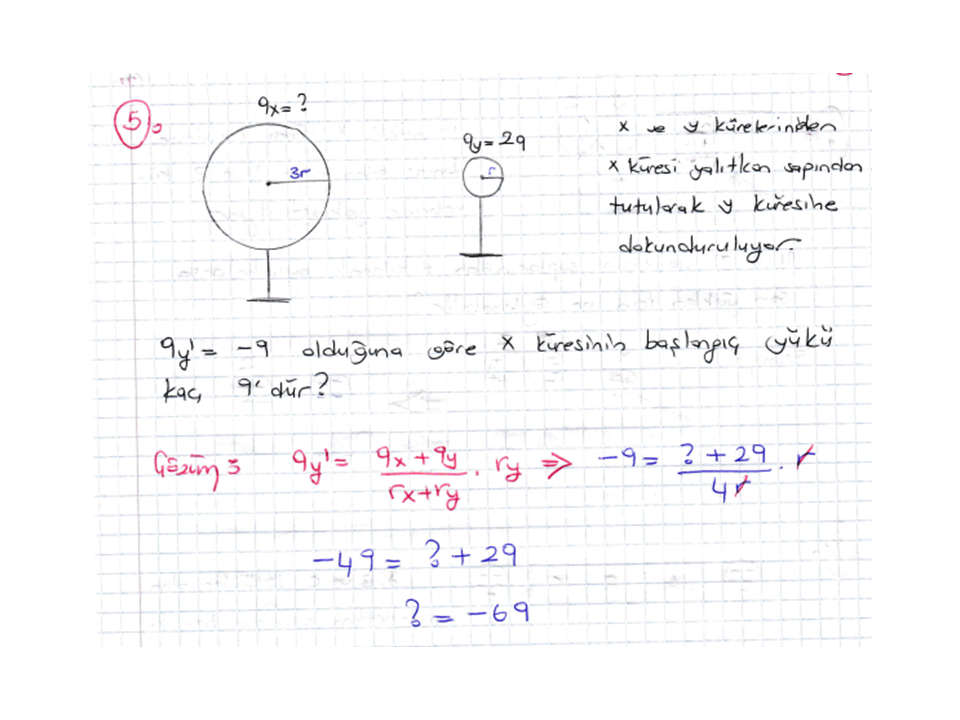 5)
qx = ?
3r
qy = 2q
r
x ve y kürelerinden
x küresi yalıtkan sapından
tutularak y küresine
dokunduruluyor.
qy' = -q olduğuna göre x küresinin başlangıç yükü
kaç q' dür?
Çözüm: qy' = qx + qy / rx + ry . ry ⇒ -q = ? + 2q / 4r . r
-4q = ? + 2q
? = -6q